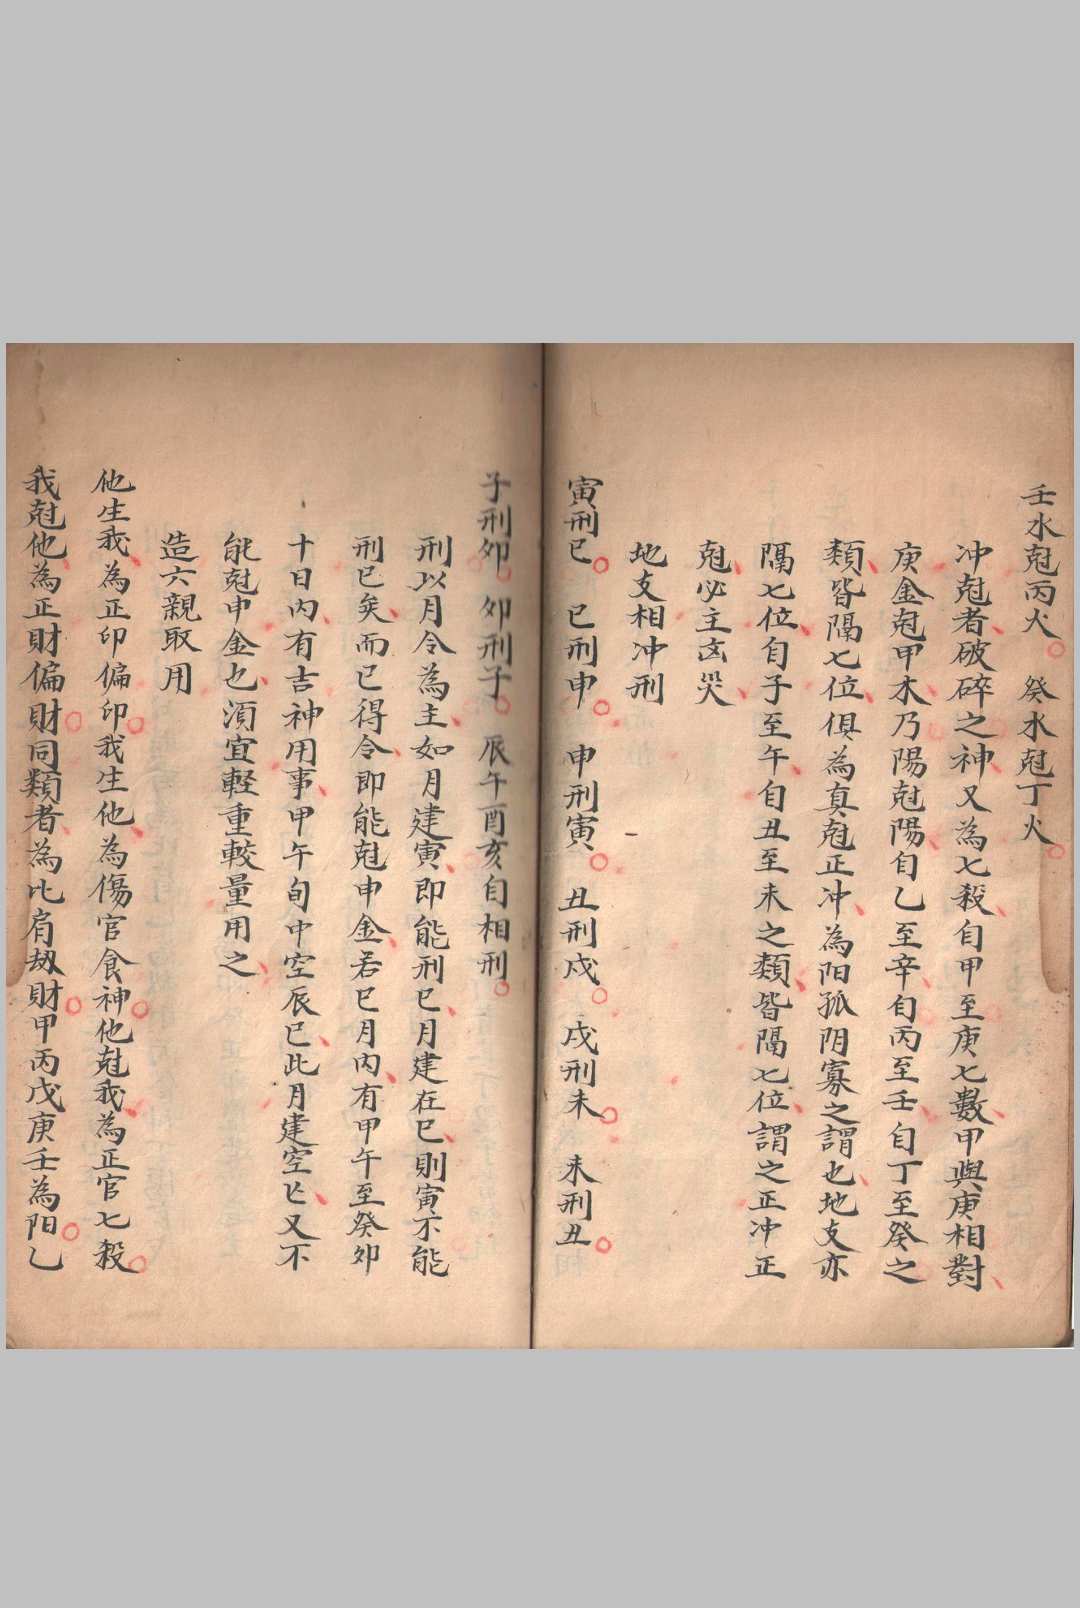 壬水尅丙火　癸水尅丁火
冲尅者破碎之神又為七殺自甲至庚七數甲與庚相對
庚金尅甲木乃陽尅陽自乙至辛自丙至壬自丁至癸之
類皆隔七位俱為真尅正冲為阳孤阴寡之謂也地支亦
隔七位自子至午自丑至未之類皆隔七位謂之正冲正
尅必主凶灾
地支相冲刑
寅刑巳　巳刑申　申刑寅　丑刑戍　戍刑未　未刑丑
子刑卯　卯刑子　辰午酉亥自相刑
刑以月令為主如月建寅即能刑巳月建在巳則寅不能
刑巳矣而巳得令即能尅申金若巳月内有甲午至癸卯
十日内有吉神用事甲午旬中空辰巳此月建空亡又不
能尅申金也須宜軽重較量用之
造六親取用
他生我為正印偏印我生他為傷官食神他尅我為正官七殺
我尅他為正財偏財同類者為比肩刼財甲丙戊庚壬為阳乙